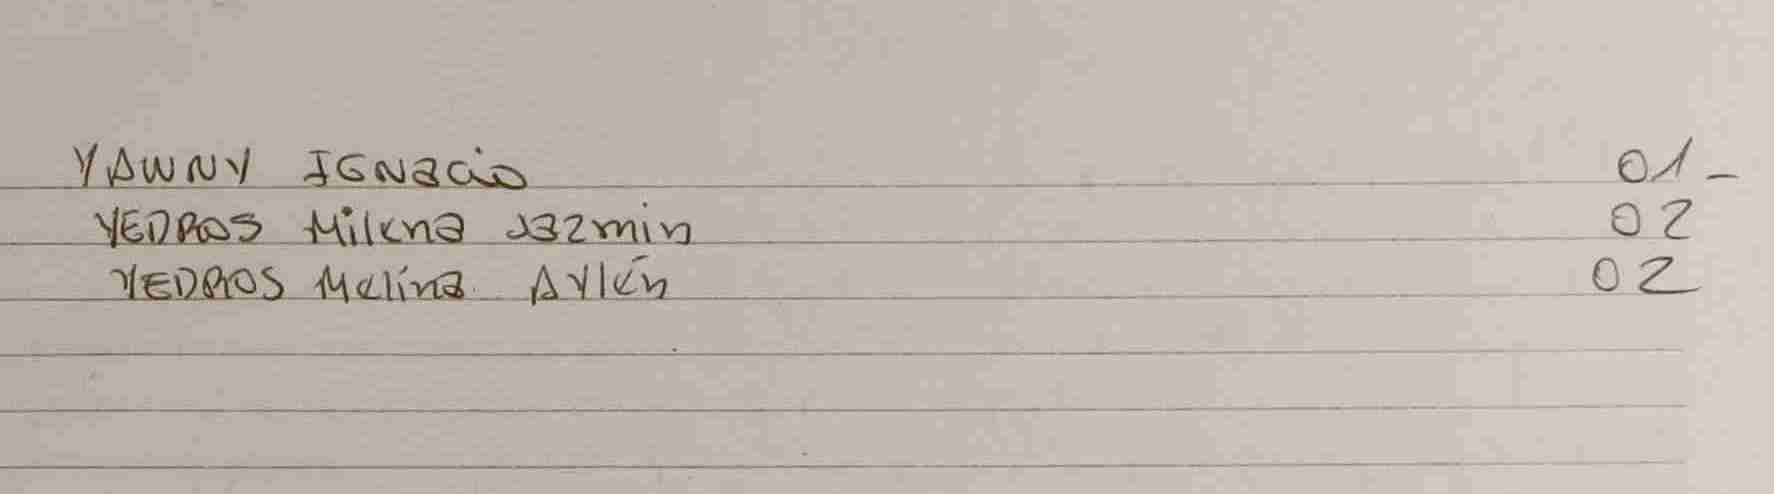 YAWNY IGNacio 01-
YEDROS Milena Jazmin 02
YEDROS Melina Aylén 02